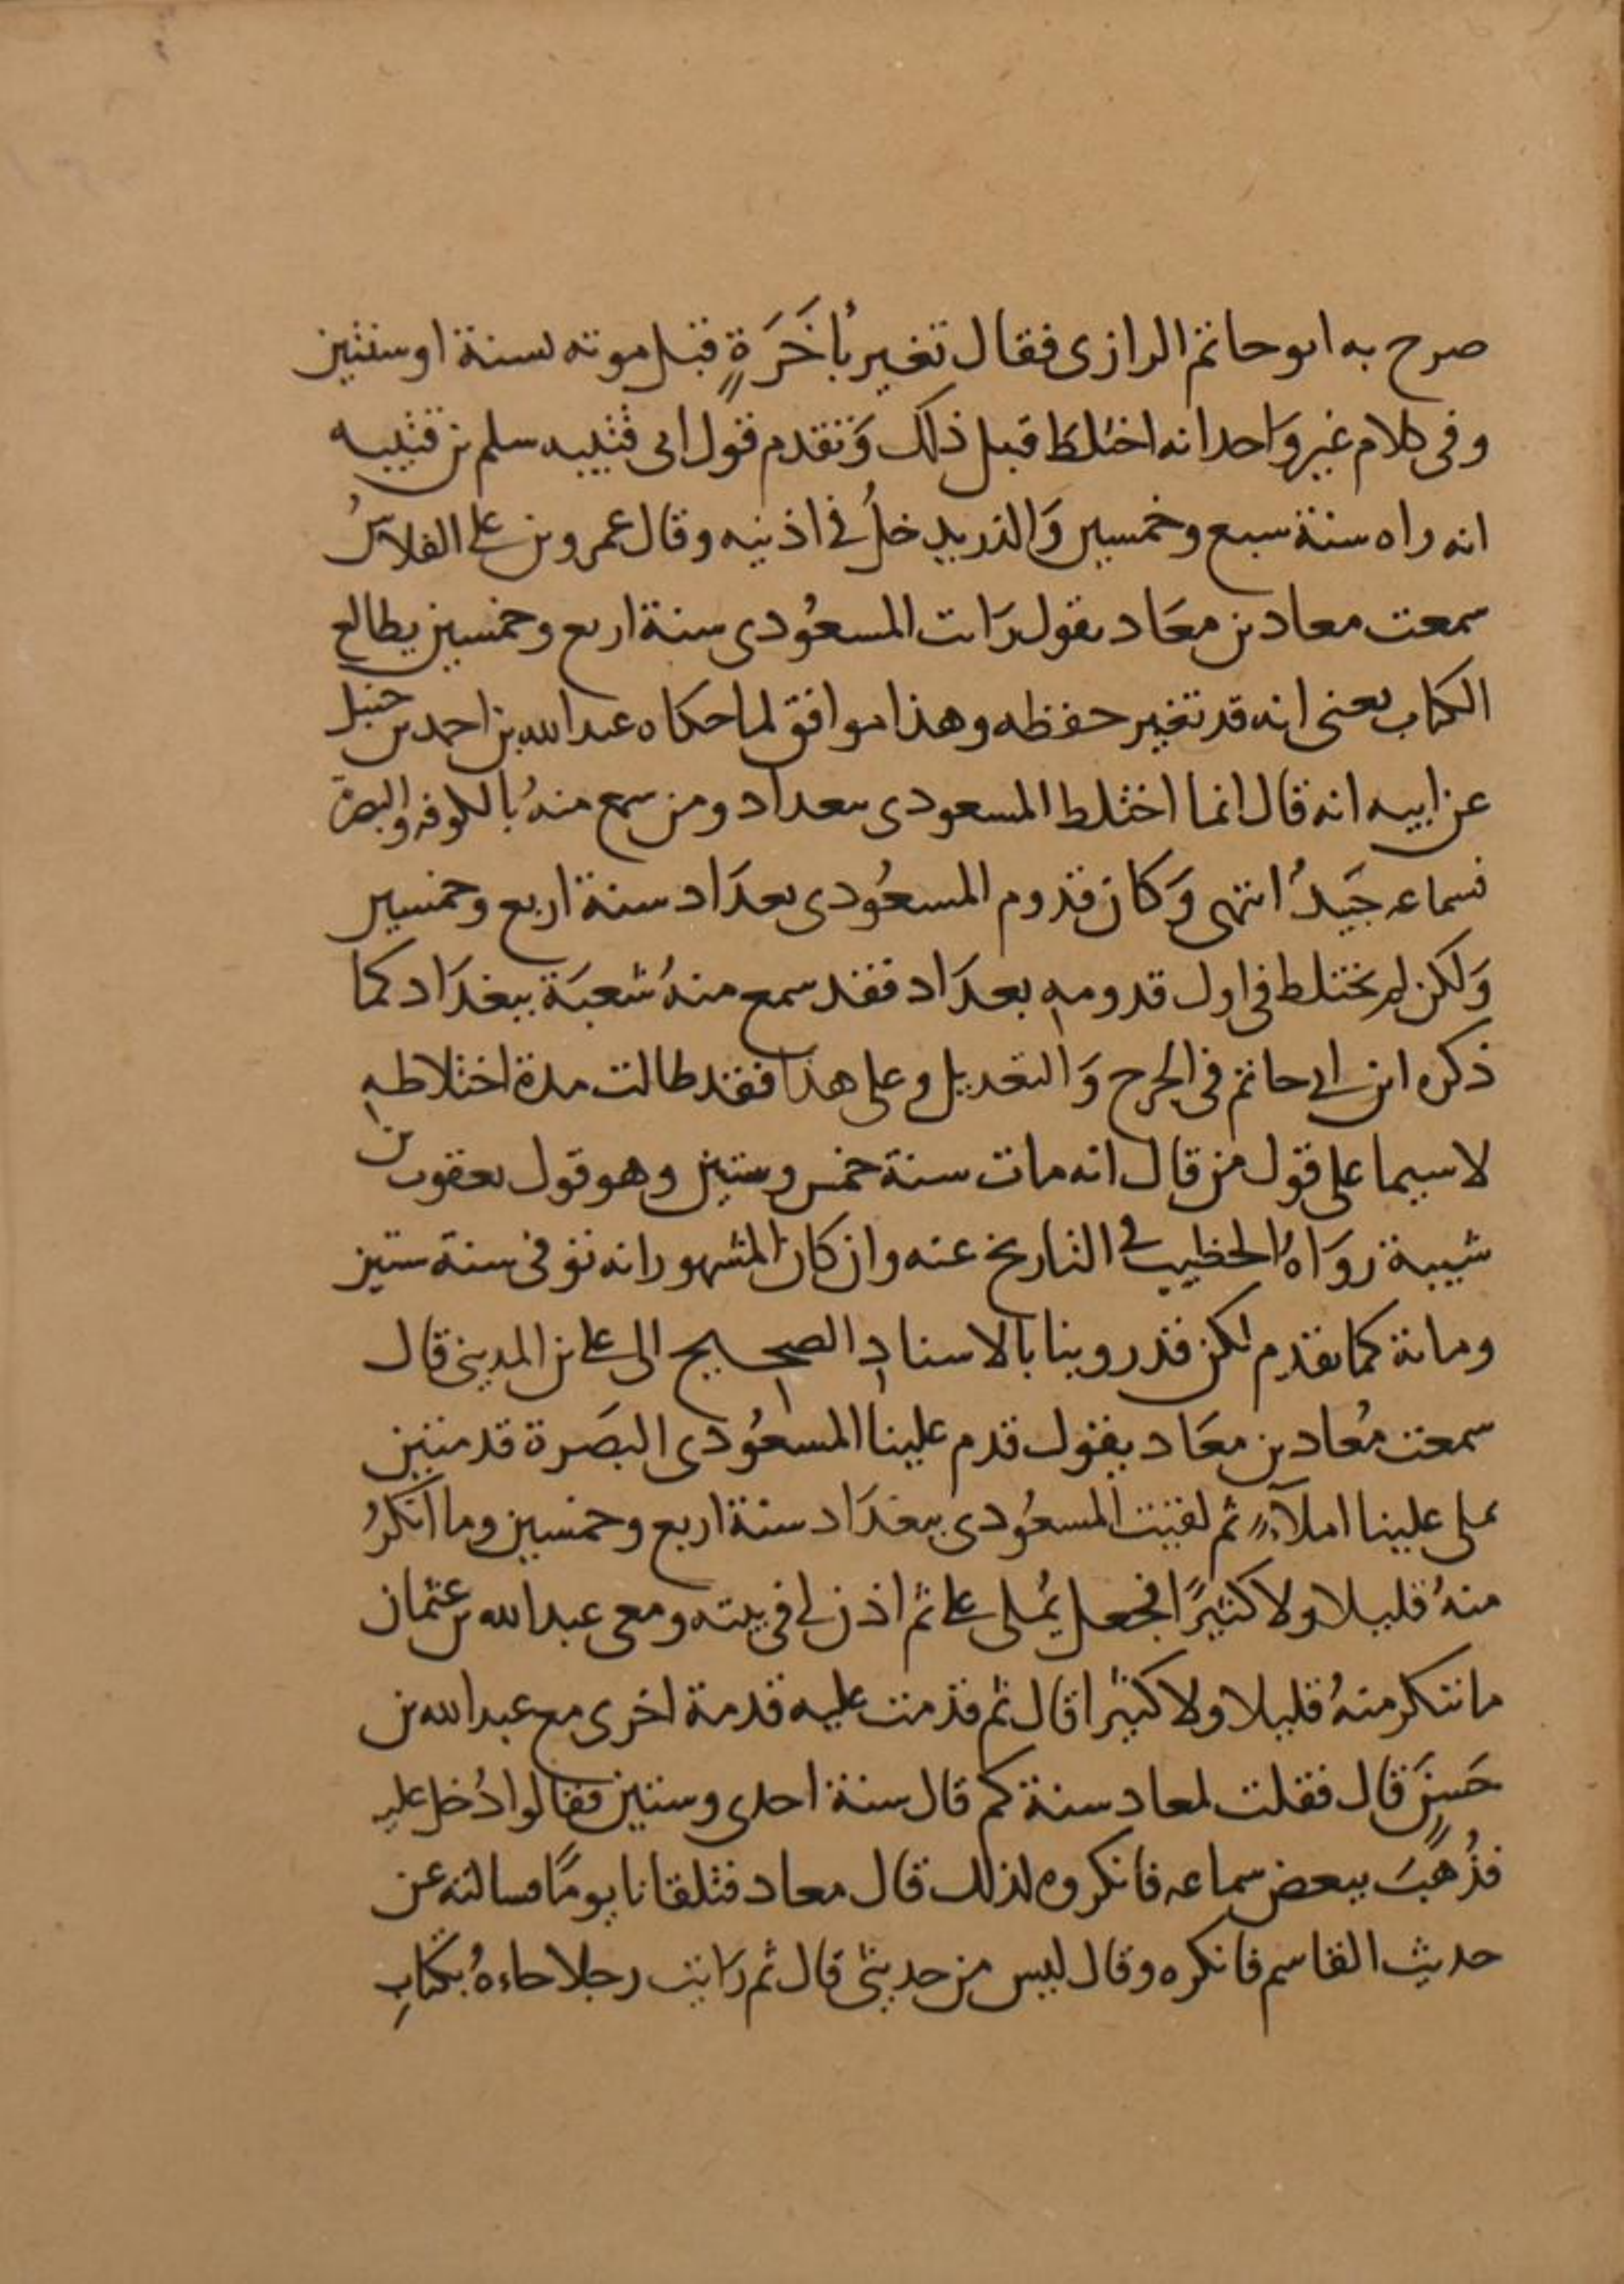 صرح به ابو حاتم الرازى فقال تغير بأخَرَةٍ قبل موته بسنة او سنتين
وفى كلام غير وَاحد انه اختلط قبل ذلك وَتقدم قول ابى قتيبه سلم بن قتيبه
انه راه سنة سبع وخمسين وَالذر يدخلُ فى اذنيه وقال عمرو بن على الفلاسُ
سمعت معاد بن معَاد يقول رَايت المسعُودى سنة اربع وخمسين يطالع
الكتاب يعنى انه قد تغير حفظه وهذا موافق لما حكاه عبد الله بن احمد بن حنبل
عن ابيه انه قال انما اختلط المسعودى ببغداد ومن سمع منهُ بالكوفه والبصرة
فسماعه جَيدُ انتهى وَكان قدوم المسعُودى بغدَاد سنة اربع وخمسين
وَلكن لم يختلط فى اول قدومهِ بغدَاد فقد سمع منهُ شعبَة ببغدَاد كما
ذكره ابن ابى حاتم فى الجرح وَالتعديل وعلى هذا فقد طالت مدة اختلاطهِ
لا سيما على قول من قال انه مات سنة خمس وستين وهو قول يعقوب بن
شيبة روَاهُ الخطيب فى التاريخ عنه وان كان المشهور انه توفى سنة ستين
ومائة كما تقدم لكن قد روينا بالاسنادِ الصحيحِ الى على بن المدينى قال
سمعت مُعاد بن معَاد يقول قدم علينا المسعُودى البصَرة قدمتين
يملى علينا املآءً ثم لقيت المسعُودى ببغدَاد سنة اربع وخمسين وما انكرُ
منهُ قليلا ولا كثيرًا فجعل يُملى على ثم اذن لى فى بيته ومعى عبد الله بن عثمان
ما ننكر منهُ قليلا ولا كثيرا قال ثم قدمت عليه قدمة اخرى مع عبد الله بن
حَسنٍ قال فقلت لمعاد سنة كم قال سنة احدى وستين فقالوا دُخل عليه
فذُهبَ ببعض سماعه فانكروه لذلك قال معاد فتلقانا يومًا فسالته عن
حديث القاسم فانكره وقال ليس من حديثى قال ثم رَايت رجلا جاءهُ بكتابِ